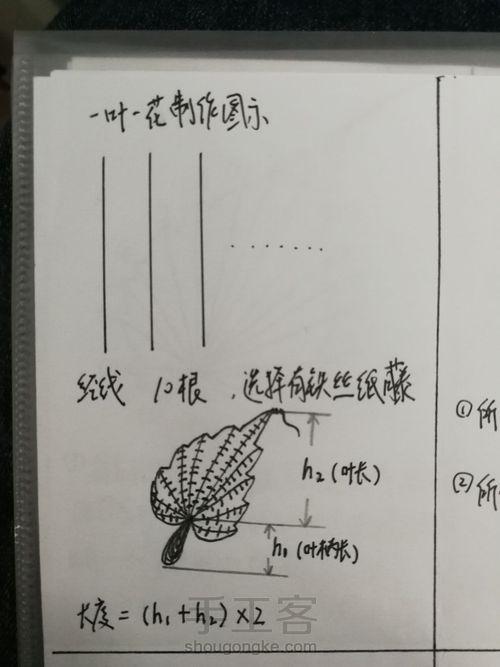 一叶一花制作图示
经线 10根,选择有铁丝纸藤
h₂(叶长)
h₁(叶柄长)
长度=(h₁+h₂)×2
① 所
② 所
手工客
shougongke.com